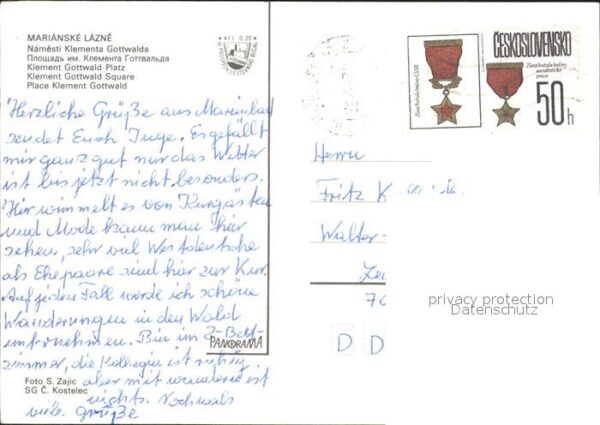 MARIÁNSKÉ LÁZNĚ
Náměstí Klementa Gottwalda
Площадь им. Клемента Готтвальда
Klement Gottwald-Platz
Klement Gottwald Square
Place Klement Gottwald
Kčs 0,20
Herzliche Grüße aus Marienbad
sendet Euch Inge. Es gefällt
mir ganz gut nur das Wetter
ist bis jetzt nicht besonders.
Hier wimmelt es von Kurgästen
und Mode kann man hier
sehen, sehr viel Westdeutsche
als Ehepaare sind hier zur Kur.
Auf jeden Fall werde ich schöne
Wanderungen in den Wald
unternehmen. Bin im 2-Bett-
zimmer, die Kollegin ist ruhig
aber mit wandern ist
nichts. Nochmals
viele Grüße
PANORAMA
Foto S. Zajíc
SG Č. Kostelec
ČESKOSLOVENSKO
Zlatá hvězda hrdiny ČSSR
Zlatá hvězda hrdiny
socialistické
práce
50 h
Herrn
Fritz K
Walter-
7
D D
privacy protection
Datenschutz